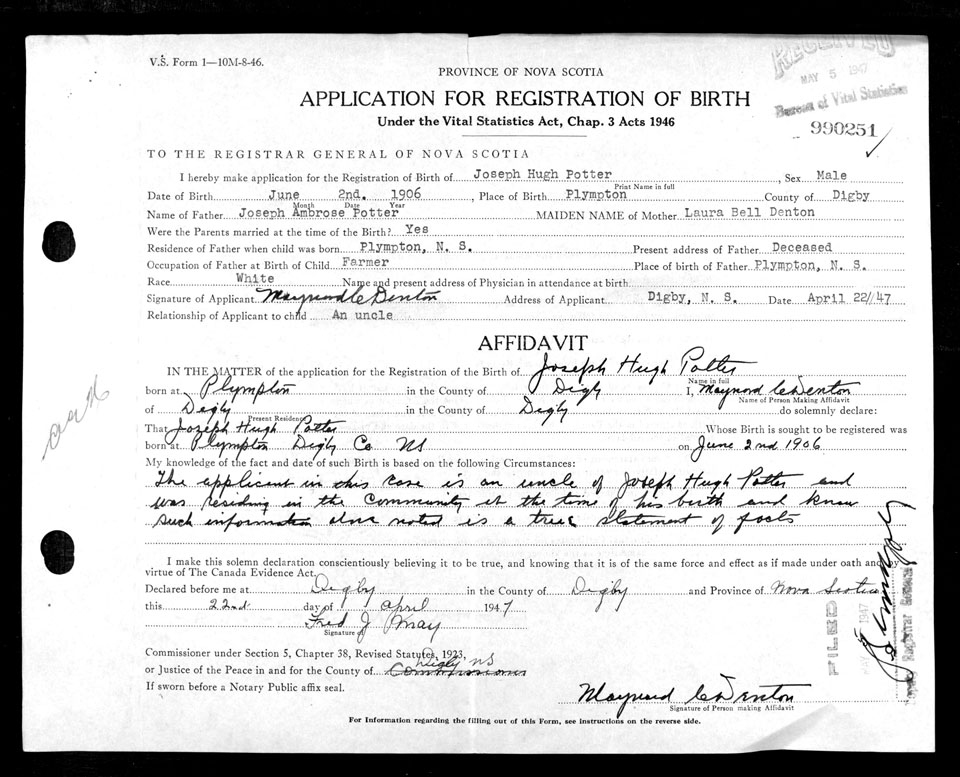 V.S. Form 1—10M-8-46.
RECEIVED
MAY 5 1947
Bureau of Vital Statistics
PROVINCE OF NOVA SCOTIA
APPLICATION FOR REGISTRATION OF BIRTH
Under the Vital Statistics Act, Chap. 3 Acts 1946
990251
TO THE REGISTRAR GENERAL OF NOVA SCOTIA
I hereby make application for the Registration of Birth of Joseph Hugh Potter, Sex Male
Print Name in full
Date of Birth June 2nd. 1906, Place of Birth Plympton County of Digby
Month Date Year
Name of Father Joseph Ambrose Potter MAIDEN NAME of Mother Laura Bell Denton
Were the Parents married at the time of the Birth? Yes
Residence of Father when child was born Plympton, N. S. Present address of Father Deceased
Occupation of Father at Birth of Child Farmer Place of birth of Father Plympton, N. S.
Race White Name and present address of Physician in attendance at birth
Signature of Applicant Maynard C Denton Address of Applicant Digby, N. S. Date April 22//47
Relationship of Applicant to child An uncle
AFFIDAVIT
IN THE MATTER of the application for the Registration of the Birth of Joseph Hugh Potter
Name in full
born at Plympton in the County of Digby I, Maynard C Denton
Name of Person Making Affidavit
of Digby in the County of Digby do solemnly declare:
Present Residence
That Joseph Hugh Potter Whose Birth is sought to be registered was
born at Plympton Digby Co NS on June 2nd 1906
My knowledge of the fact and date of such Birth is based on the following Circumstances:
The applicant in this case is an uncle of Joseph Hugh Potter and
was residing in the community at the time of his birth and know
such information above noted is a true statement of facts
I make this solemn declaration conscientiously believing it to be true, and knowing that it is of the same force and effect as if made under oath and by
virtue of The Canada Evidence Act.
Declared before me at Digby in the County of Digby and Province of Nova Scotia
this 22nd day of April 1947
Fred J May
Signature of
Commissioner under Section 5, Chapter 38, Revised Statutes, 1923,
Digby NS
or Justice of the Peace in and for the County of Commissioner
If sworn before a Notary Public affix seal.
Maynard C Denton
Signature of Person making Affidavit
For Information regarding the filling out of this Form, see instructions on the reverse side.
FILED
MAY 1947
Registrar General